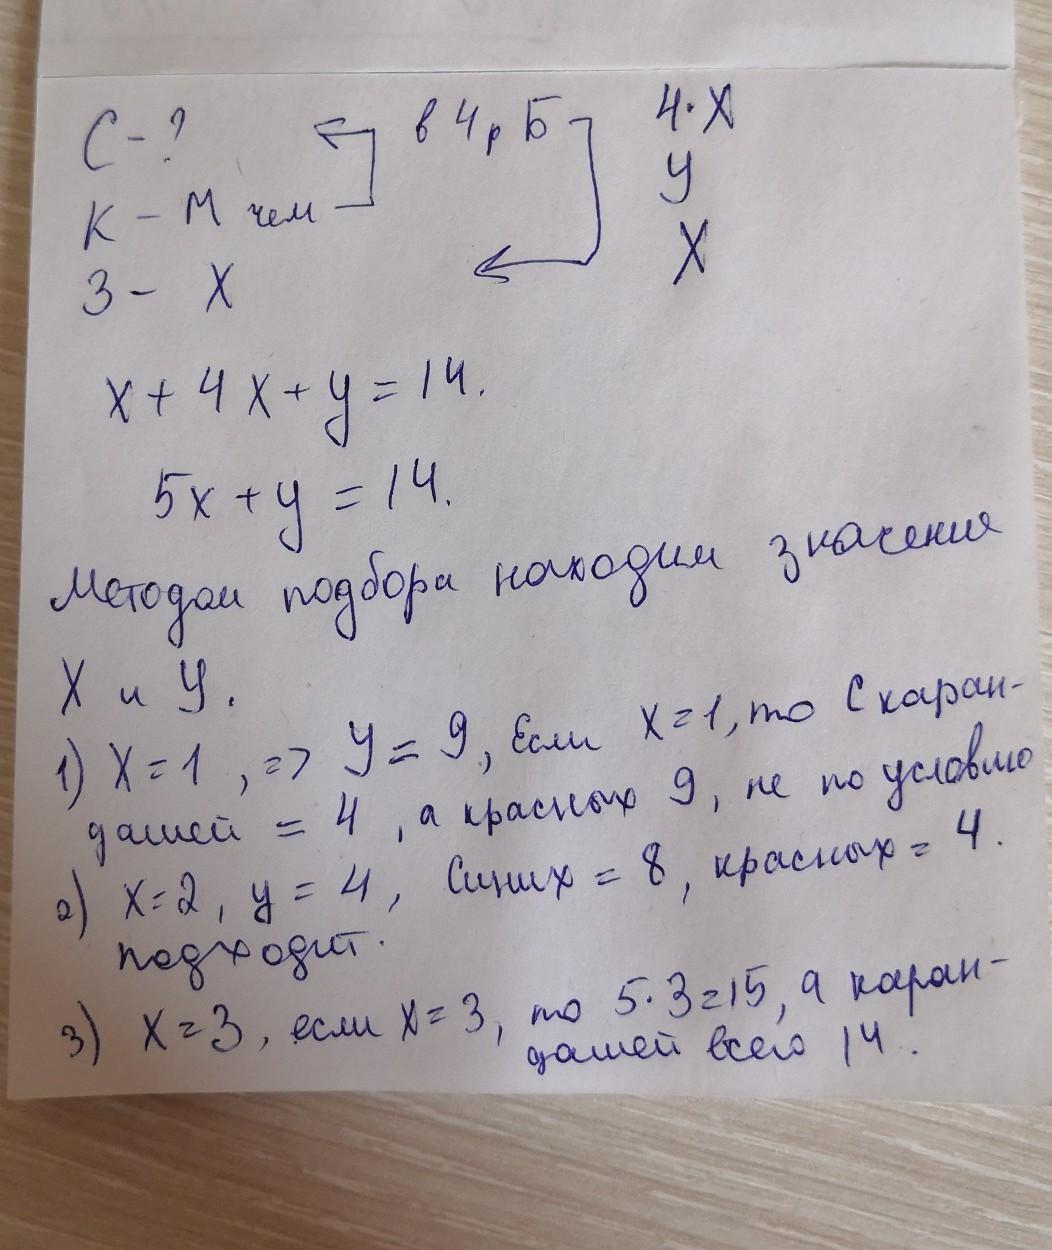 С - ? в 4 р Б 4·X
К - М чем У
З - X X
x + 4x + y = 14.
5x + y = 14.
Методом подбора находим значения
X и У.
1) X = 1, => У = 9, Если X = 1, то С каран-
дашей = 4, а красных 9, не по условию
2) X = 2, y = 4, Синих = 8, красных = 4.
подходит.
3) X = 3, если X = 3, то 5·3=15, а каран-
дашей всего 14.